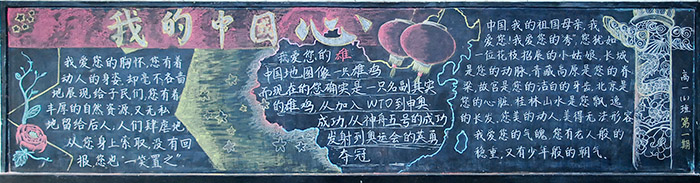 我的中国心
我爱您的胸怀,您有着
动人的身姿,却毫不吝啬
地展现给子民们,您有着
丰厚的自然资源,又无私
地留给后人,人们肆虐地
从您身上索取,没有回
报,您也"一笑置之"
我爱您的雄
中国地图像一只雄鸡
而现在的您确实是一只名副其实
的雄鸡,从加入WTO到申奥
成功,从神舟五号的成功
发射到奥运会的大勇
夺冠
中国,我的祖国母亲,我
爱您!我爱您的秀,您犹如
一位花枝招展的小姑娘,长城
是您的动脉,青藏高原是您的脊
梁,故宫是您的洁白的牙齿,北京是
您的心脏,桂林山水是您飘逸
的长发,您美的动人,美得无法形容
我爱您的气魄,您有老人般的
稳重,又有少年般的朝气.
高一(2)班 第一期